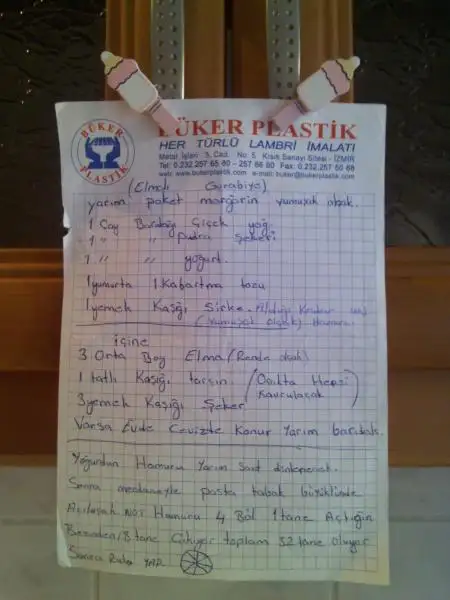 BÜKER PLASTİK
BÜKER PLASTİK
HER TÜRLÜ LAMBRİ İMALATI
Metal İşleri 3. Cad. No: 5 Kısık Sanayi Sitesi - İZMİR
Tel: 0.232.257 65 80 - 257 66 80 Fax: 0.232.257 50 68
web: www.bukerplastik.com e-mail: buker@bukerplastik.com
(Elmalı Gurabiye)
yarım paket margarin yumuşak olacak.
1 Çay Bardağı Çiçek yağ.
1 " " Pudra Şekeri
1 " " yoğurt.
1 yumurta 1. Kabartma tozu
1 yemek Kaşığı Sirke - Aldığı Kadar un
(Yumuşak olacak) Hamuru.
içine
3 Orta Boy Elma (Rende olcak)
1 tatlı Kaşığı tarçın (Ocakta Hepsi
Kavrulacak)
3 yemek Kaşığı Şeker
Varsa Evde Cevizde Konur Yarım bardak.
Yoğurdun Hamuru Yarım Saat dinlenecek.
Sonra merdaneyle pasta tabak büyüklünde
Açılacak NOT Hamuru 4 Böl 1 tane Açtığın
Bezeden 8 tane Çıkıyor toplam 32 tane oluyor
Sonra Rulo YAP